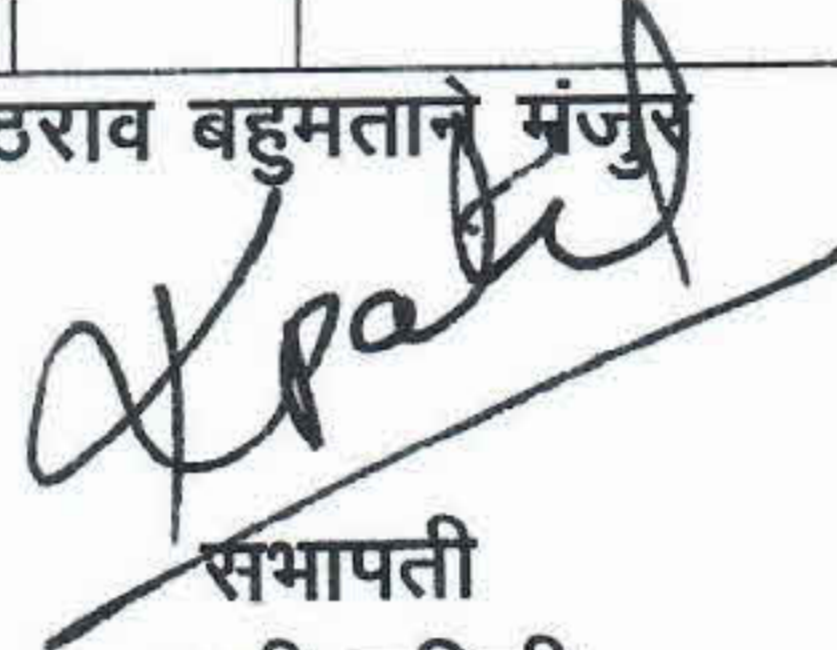 ठराव बहुमताने मंजुर
Kpatil
सभापती